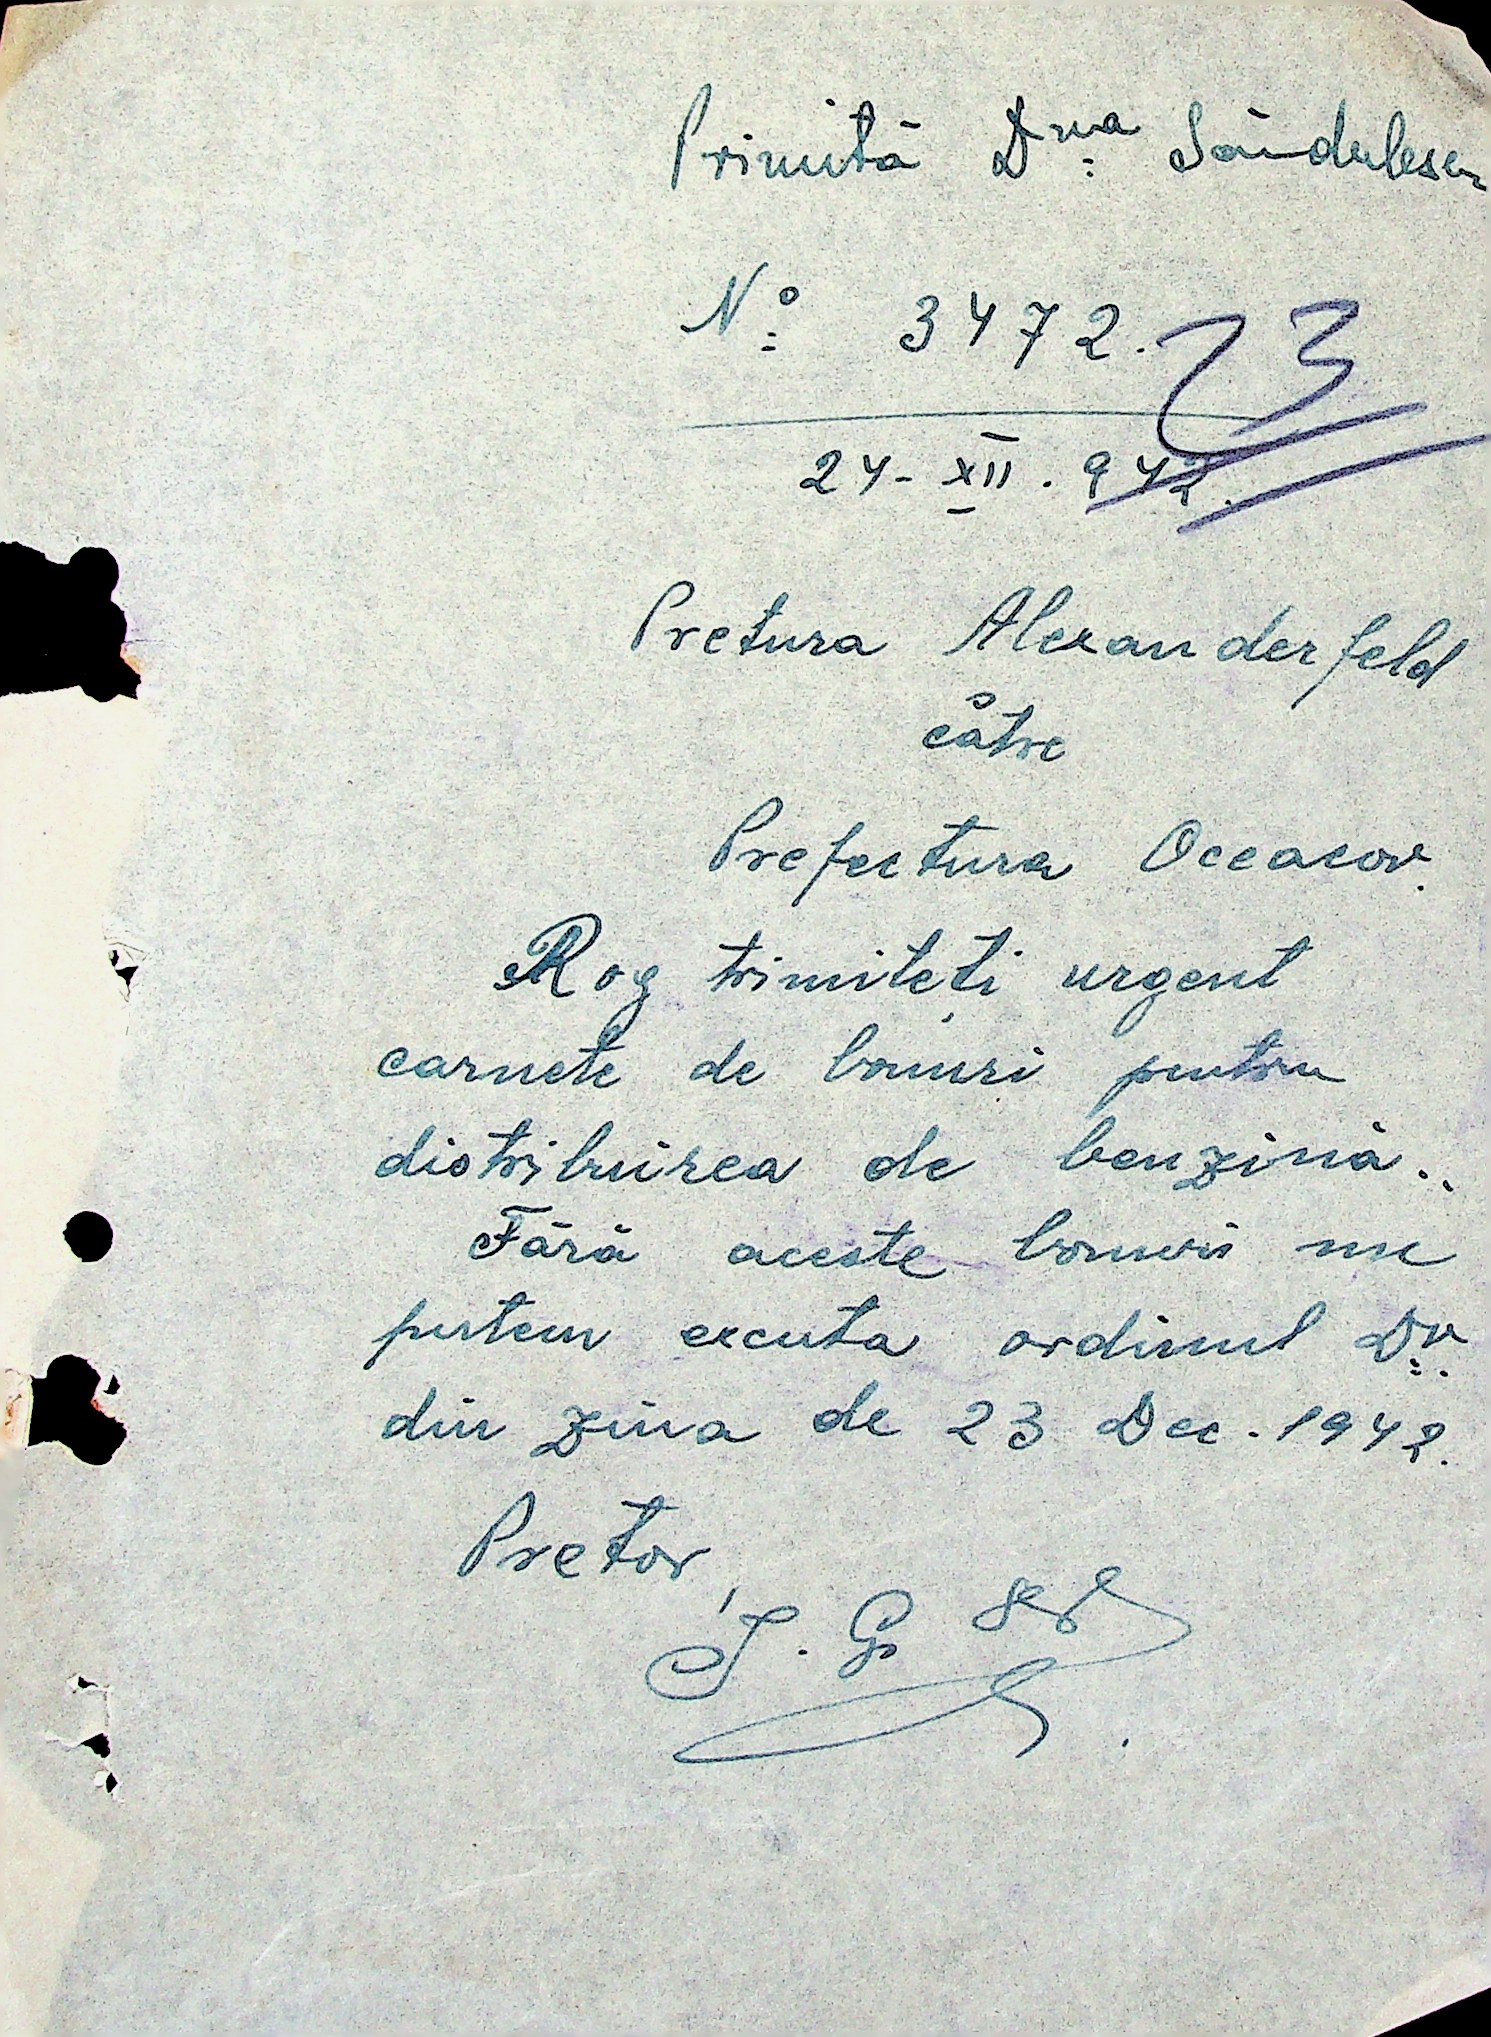 Primită Dna Săndulescu
No 3472. 23
24-XII.942.
Pretura Alexanderfeld
către
Prefectura Oceacov.
Rog trimiteți urgent
carnete de bonuri pentru
distribuirea de benzină..
Fără aceste bonuri nu
putem excuta ordinul Dv.
din ziua de 23 Dec. 1942.
Pretor,